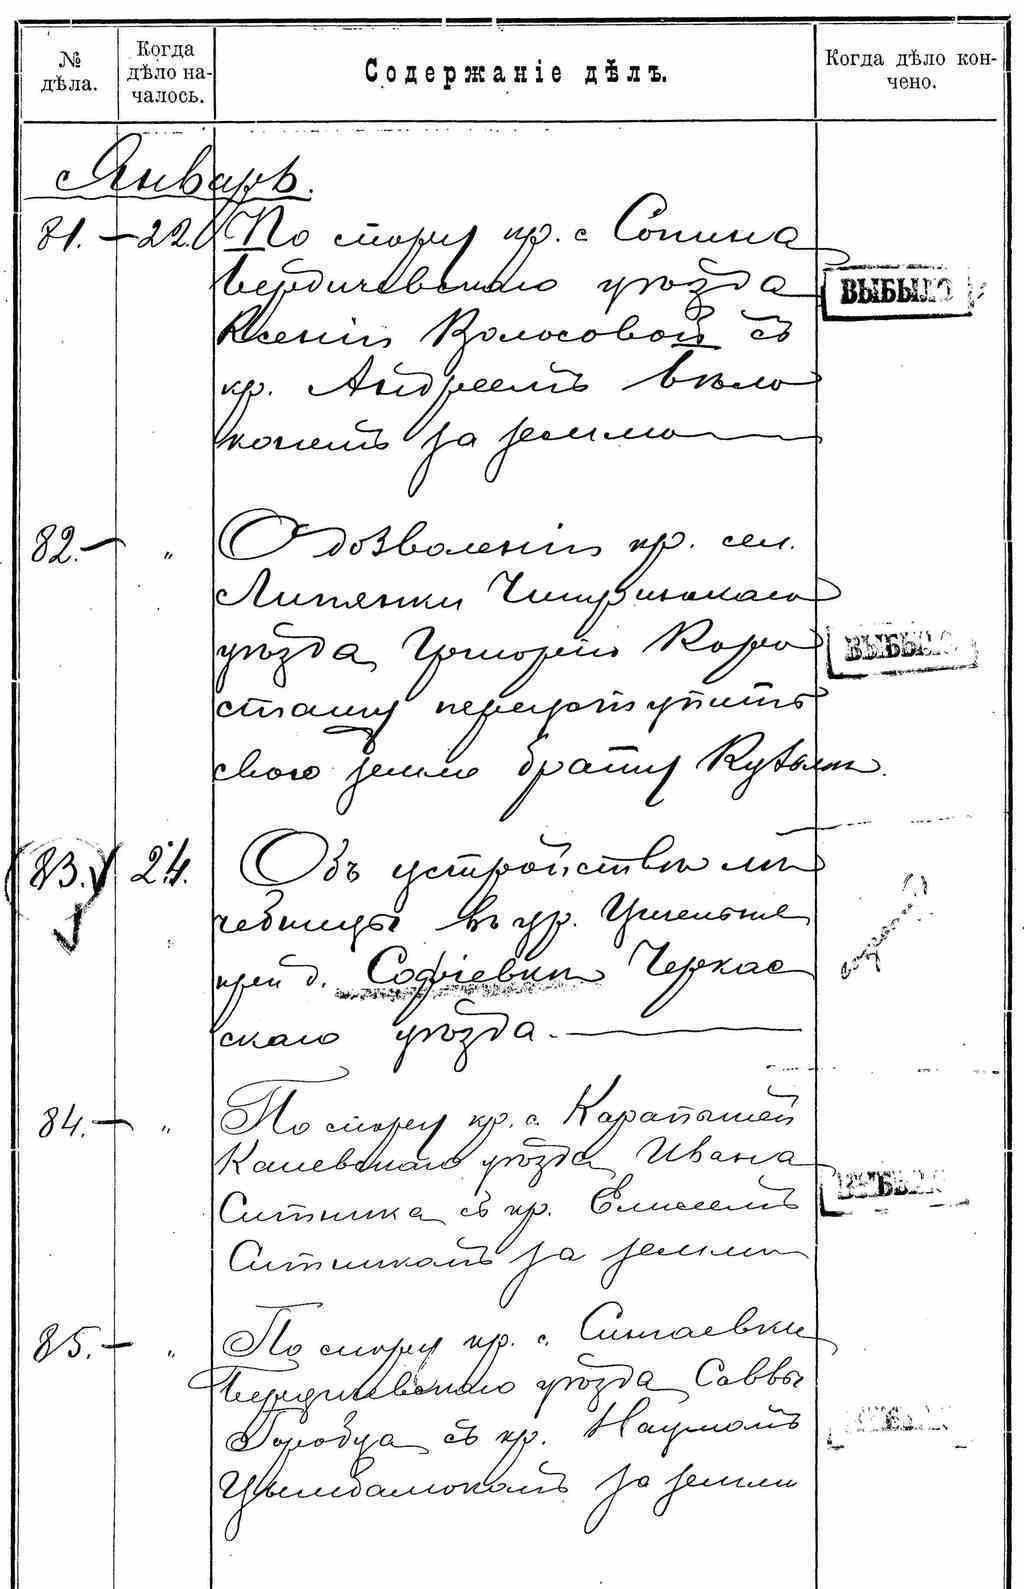 № дѣла.
Когда дѣло на-
чалось.
Содержаніе дѣлъ.
Когда дѣло кон-
чено.
Январь.
81. 22. По спору кр. с. Сопина
Бердичевскаго уѣзда
ВЫБЫЛО
Ксеніи Волосовой съ
кр. Андреемъ Бѣло
конемъ за землю
82. " О дозволеніи кр. сел.
Липянки Чигиринскаго
уѣзда Григорію Коро
ВЫБЫЛО
сташу переуступить
свою землю брату
83. 24. Объ устройствѣ лѣ
чебницы въ ур.
при д. Софіевки Черкас
скаго уѣзда.
84. " По спору кр. с. Карапышей
Каневскаго уѣзда Ивана
ВЫБЫЛО
Ситника съ кр. Елисеемъ
Ситникомъ за землю
85. " По спору кр. с. Сингаевки
Бердичевскаго уѣзда Саввы
Горобца съ кр. Наумомъ
ВЫБЫЛО
Цымбалюкомъ за землю